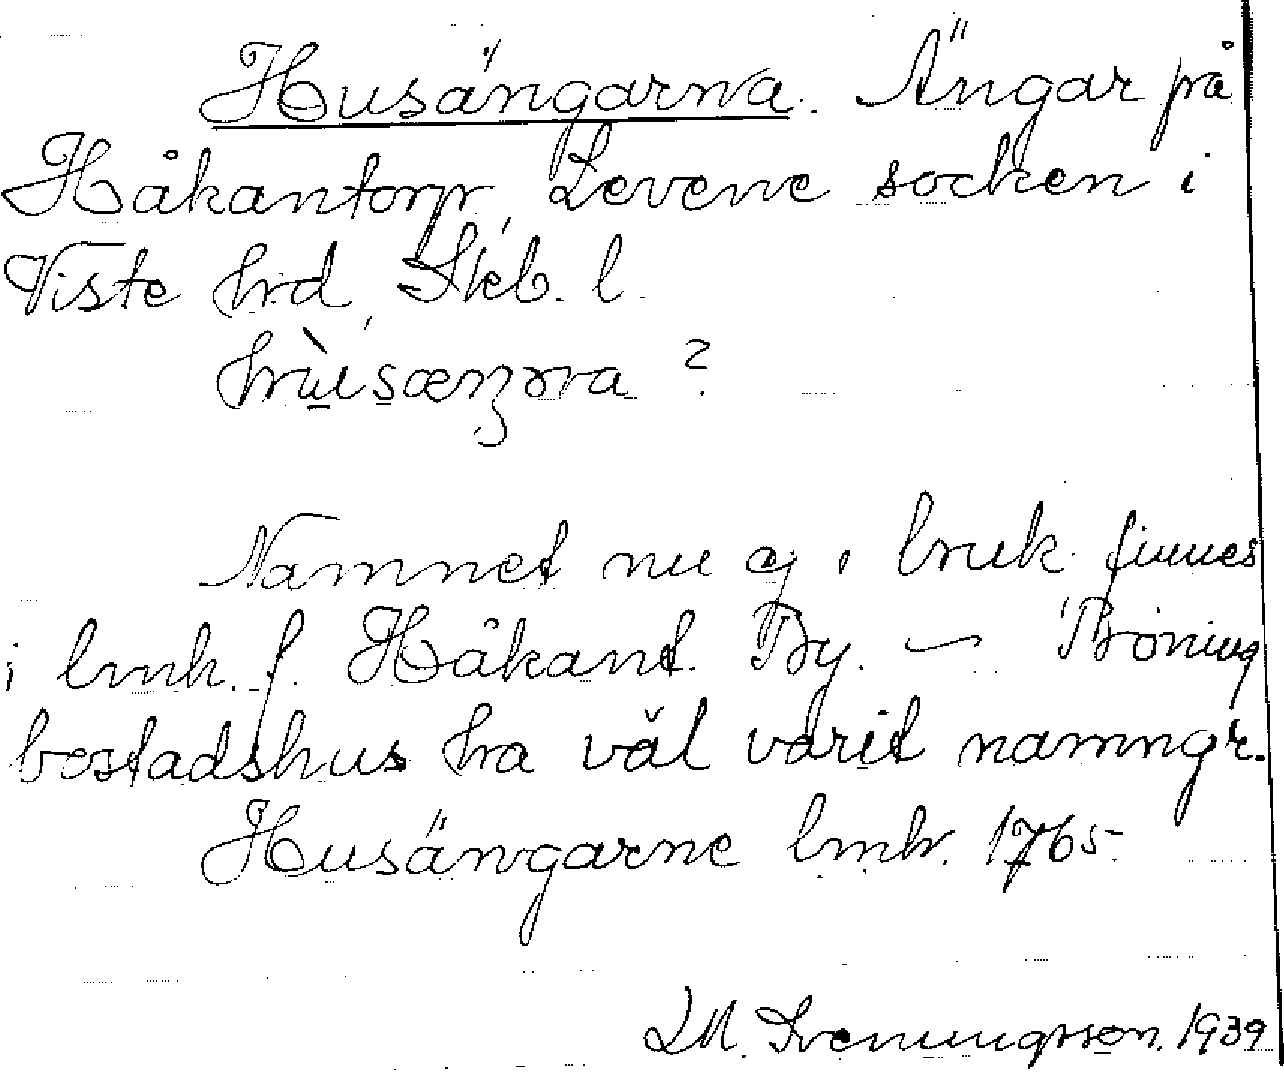 Husängarna. Ängar på
Håkantorp, Levene socken i
Viste hrd, Skb. l.
hùsæŋɔra ?
Namnet nu ej i bruk. finnes
i lmh. f. Håkant. By. —
bostadshus ha väl varit namngr.
Husängarne lmh. 1765.
LM. Svenungsson. 1939